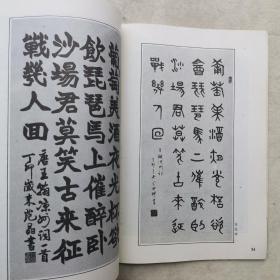 葡萄美酒夜光杯欲
飲琵琶馬上催醉卧
沙場君莫笑古来征
戰幾人回
葡萄美酒夜光杯欲
飲琵琶馬上催醉卧
沙場君莫笑古来征
戰幾人回
唐王翰凉州词一首
丁卯歲末